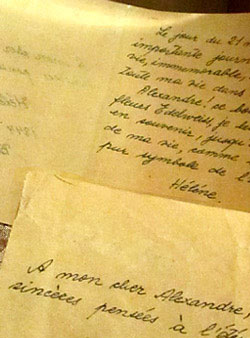 Le jour du 21
importante journ
vie, innumorables,
toute ma vie dans
Alexandre, ce bo
fleurs Edelweiss, je
en souvenir jusqu'
de ma vie, comme
pur symbole de l'
Hélène.
A mon cher Alexandre,
sincères pensées à l'ét